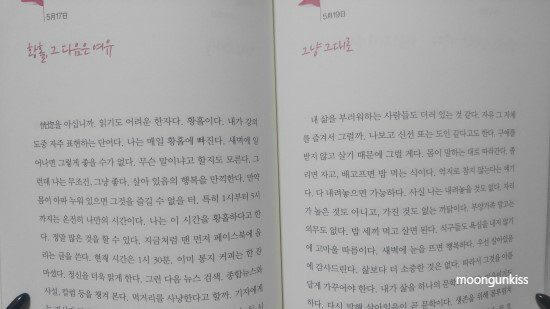 5月17日
황홀, 그 다음은 여유
恍惚을 아십니까. 읽기도 어려운 한자다. 황홀이다. 내가 강의
도중 자주 표현하는 단어다. 나는 매일 황홀에 빠진다. 새벽에 일
어나면 그렇게 좋을 수가 없다. 무슨 말이냐고 할지도 모른다. 그
런데 나는 무조건, 그냥 좋다. 살아 있음의 행복을 만끽한다. 만약
몸이 아파 누워 있으면 그것을 즐길 수 없을 터. 특히 1시부터 5시
까지는 온전히 나만의 시간이다. 나는 이 시간을 황홀하다고 한
다. 정말 많은 것을 할 수 있다. 지금처럼 맨 먼저 페이스북에 올
라는 글을 쓴다. 현재 시간은 1시 30분. 이미 봉지 커피는 한 잔
마셨다. 정신을 더욱 맑게 한다. 그런 다음 뉴스 검색. 종합뉴스와
사설, 칼럼 등을 챙겨 본다. 먹거리를 사냥한다고 할까. 기자에게
5月19日
그냥 그대로
내 삶을 부러워하는 사람들도 더러 있는 것 같다. 자유 그 자체
를 즐겨서 그럴까. 나보고 신선 또는 도인 같다고도 한다. 구애를
받지 않고 살기 때문에 그럴 게다. 몸이 말하는 대로 따라간다. 졸
리면 자고, 배고프면 밥 먹는 식이다. 억지로 참지 않는다는 얘기
다. 다 내려놓으면 가능하다. 사실 나는 내려놓을 것도 없다. 자리
가 높은 것도 아니고, 가진 것도 없는 까닭이다.
의무도 없다. 밥 세끼 먹고 살면 된다. 식구들도 욕심을 내지 않기
에 고마울 따름이다. 새벽에 눈을 뜨면 행복하다. 우선 살아있음
에 감사드린다. 삶보다 더 소중한 것은 없다. 따라서 그것을 아름
답게 가꾸어야 한다. 나는 삶을 하나의
한다. 다시 말해 살아있음이 곧 문학이다. 생존을 위해
moongunkiss